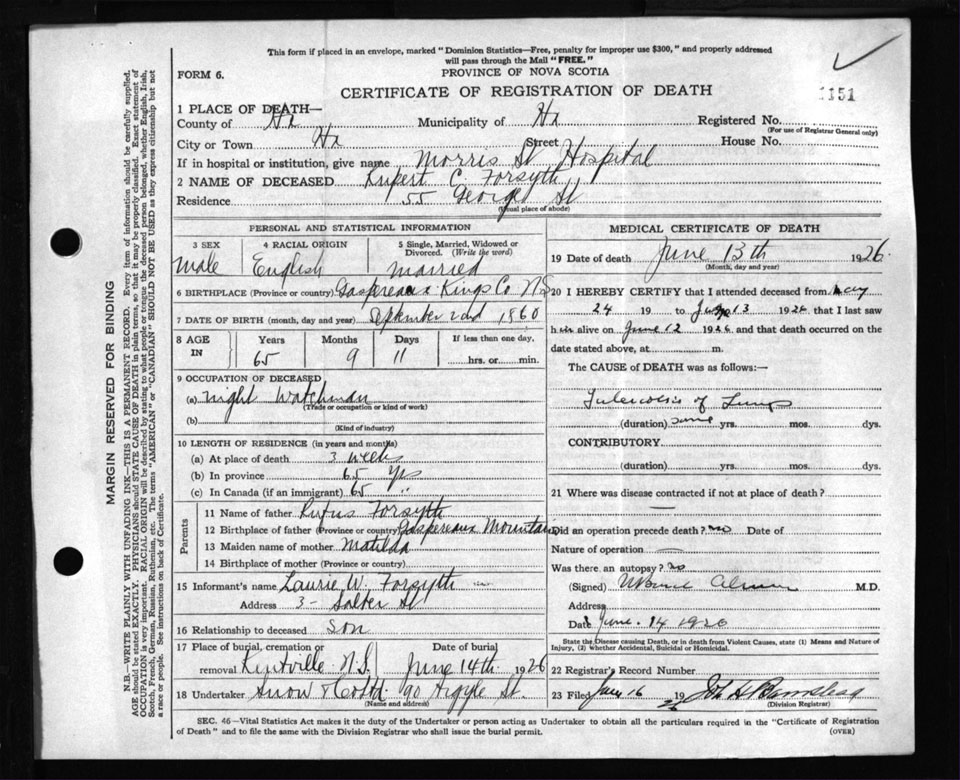 This form if placed in an envelope, marked "Dominion Statistics—Free, penalty for improper use $300," and properly addressed
will pass through the Mail "FREE."
FORM 6.
PROVINCE OF NOVA SCOTIA
CERTIFICATE OF REGISTRATION OF DEATH
1151
1 PLACE OF DEATH—
County of Hx Municipality of Hx Registered No.
(For use of Registrar General only)
City or Town Hx Street House No.
If in hospital or institution, give name Morris St Hospital
2 NAME OF DECEASED Rupert C. Forsyth
Residence 55 George St
(Usual place of abode)
PERSONAL AND STATISTICAL INFORMATION
3 SEX 4 RACIAL ORIGIN 5 Single, Married, Widowed or Divorced. (Write the word)
male English married
6 BIRTHPLACE (Province or country) Gaspereaux Kings Co NS
7 DATE OF BIRTH (month, day and year) September 2nd 1860
8 AGE IN Years Months Days If less than one day,
65 9 11 hrs. or min.
9 OCCUPATION OF DECEASED
(a) night Watchman
(Trade or occupation or kind of work)
(b)
(Kind of industry)
10 LENGTH OF RESIDENCE (in years and months)
(a) At place of death 3 weeks
(b) In province 65 yrs
(c) In Canada (if an immigrant) 65 "
Parents
11 Name of father Rufus Forsyth
12 Birthplace of father (Province or country) Gaspereaux Mountain
13 Maiden name of mother Matilda
14 Birthplace of mother (Province or country)
15 Informant's name Laurie W. Forsyth
Address 3- Salter St
16 Relationship to deceased son
17 Place of burial, cremation or Date of burial
removal Kentville N.S. June 14th 1926
18 Undertaker Snow & Co Ltd 90 Argyle St.
(Name and address)
MEDICAL CERTIFICATE OF DEATH
19 Date of death June 13th 1926
(Month, day and year)
20 I HEREBY CERTIFY that I attended deceased from May
24 19 to June 13 1926 that I last saw
him alive on June 12 1926 and that death occurred on the
date stated above, at m.
The CAUSE of DEATH was as follows:—
Tuberculosis of Lungs
(duration) some yrs. mos. dys.
CONTRIBUTORY
(duration) yrs. mos. dys.
21 Where was disease contracted if not at place of death?
Did an operation precede death? no Date of
Nature of operation
Was there an autopsy? no
(Signed) M.D.
Address
Date June 14 1926
State the Disease causing Death, or in death from Violent Causes, state (1) Means and Nature of
Injury, (2) Whether Accidental, Suicidal or Homicidal.
22 Registrar's Record Number
23 Filed June 16 1926
(Division Registrar)
SEC. 46—Vital Statistics Act makes it the duty of the Undertaker or person acting as Undertaker to obtain all the particulars required in the "Certificate of Registration
of Death" and to file the same with the Division Registrar who shall issue the burial permit.
(OVER)
MARGIN RESERVED FOR BINDING
N.B.—WRITE PLAINLY WITH UNFADING INK—THIS IS A PERMANENT RECORD. Every item of information should be carefully supplied.
AGE should be stated EXACTLY. PHYSICIANS should STATE CAUSE OF DEATH in plain terms, so that it may be properly classified. Exact statement of
OCCUPATION is very important. RACIAL ORIGIN will be described by stating to what people or tongue the deceased person belonged, whether English, Irish,
Scotch, French, German, Russian, Ruthenian, etc. The terms "AMERICAN" or "CANADIAN" SHOULD NOT BE USED as they express citizenship but not
a race or people. See instructions on back of Certificate.